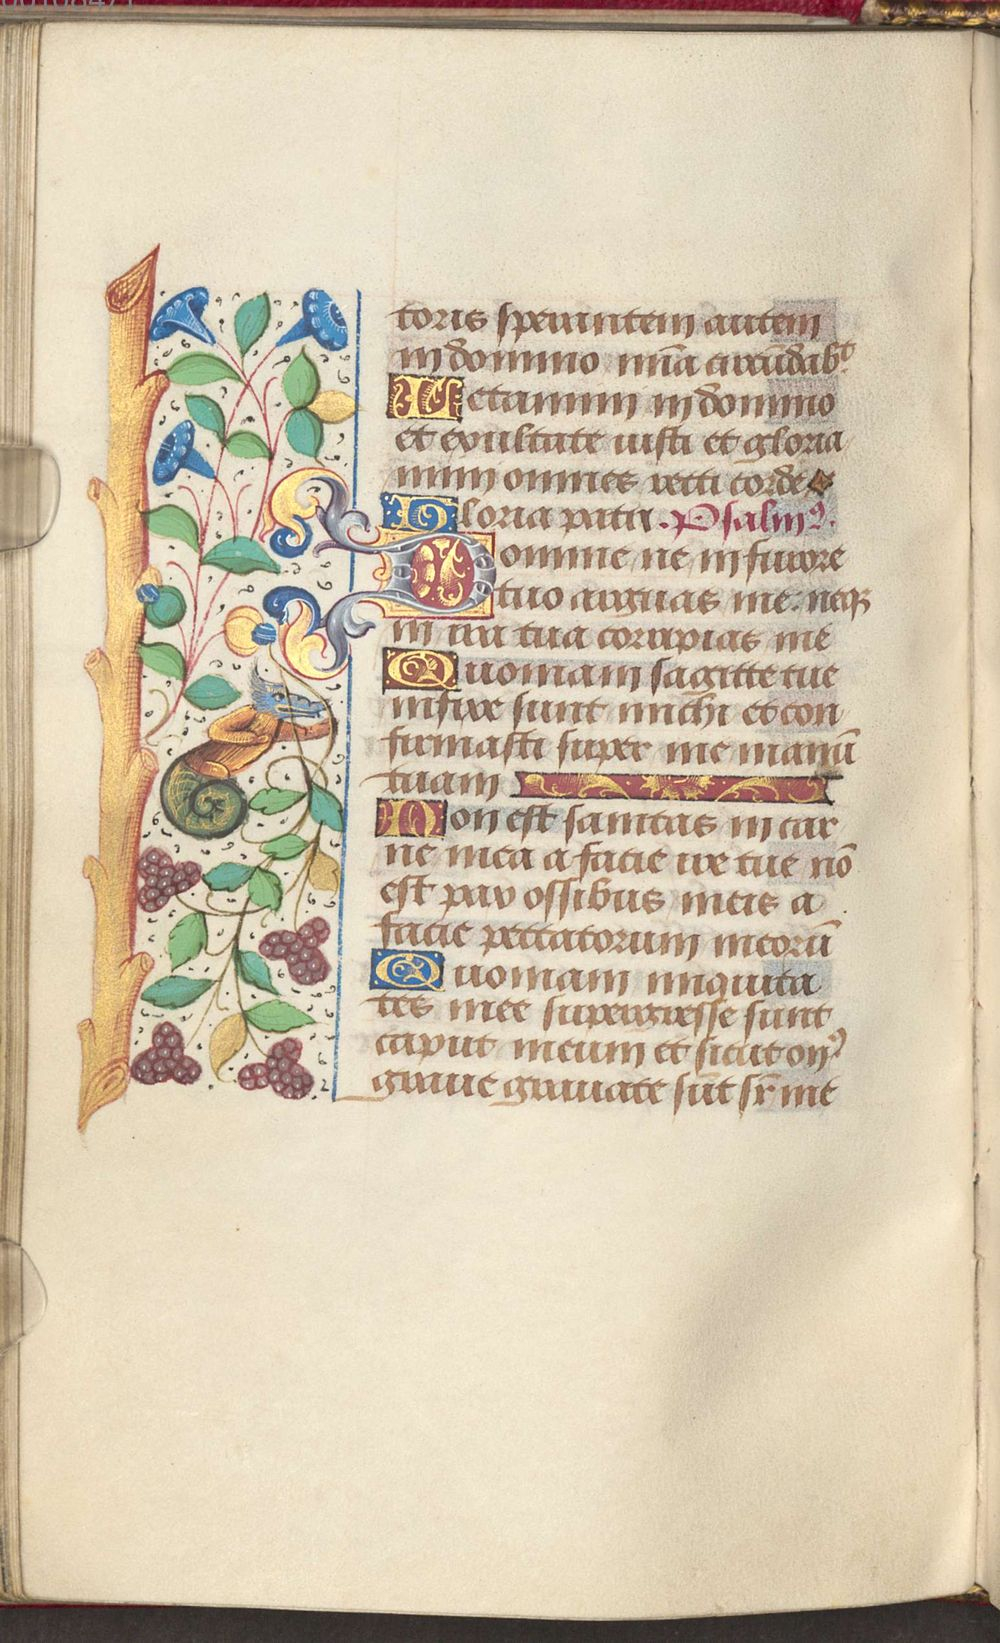 toris sperantem autem
in domino mĩa circũdabᵗ
Letamini in domino
et exultate iusti et gloria
mini omnes recti corde
Gloria patri. Psalmꝰ.
Domine ne in furore
tuo arguas me. neqꝫ
in ira tua corripias me
Quoniam sagitte tue
infixe sunt michi et con
firmasti super me manũ
tuam
Non est sanitas in car
ne mea a facie ire tue nõ
est pax ossibus meis a
facie peccatorum meorũ
Quoniam iniquita
tes mee supergresse sunt
caput meum et sicut onꝰ
graue grauate sũt sr̃ me